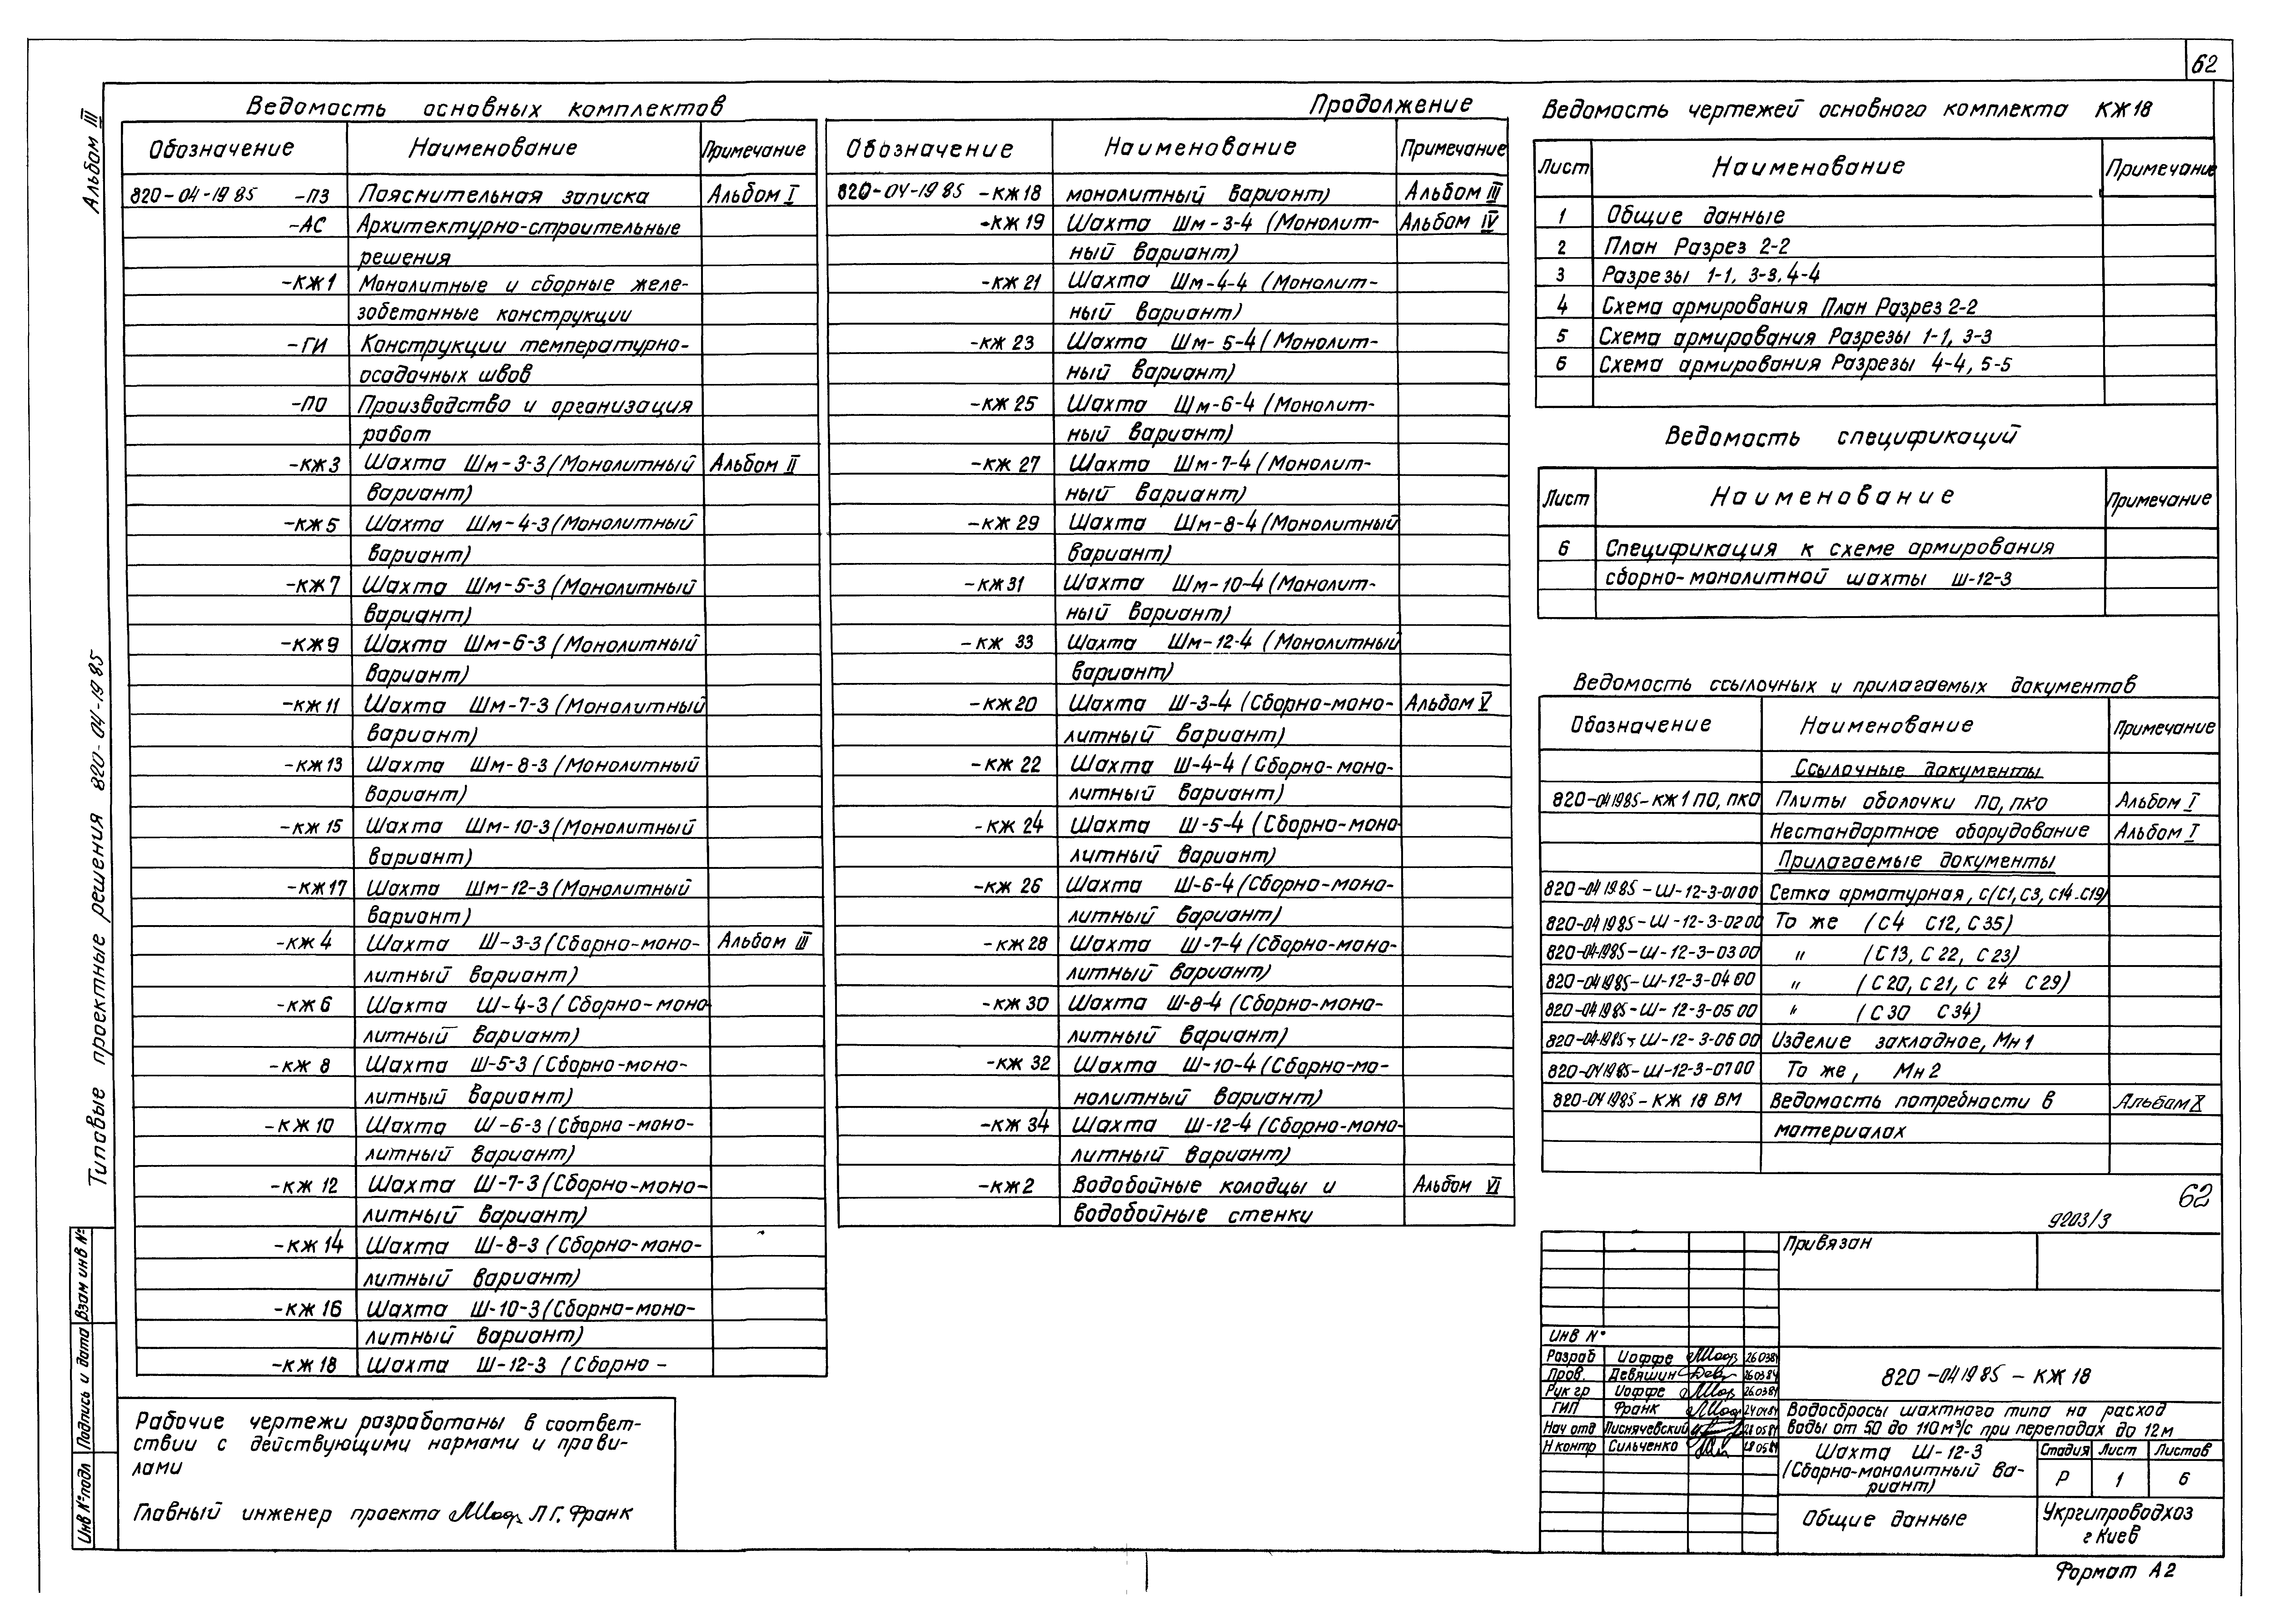 62
Альбом III
Типовые проектные решения 820-04-19 85
Ведомость основных комплектов
Обозначение Наименование Примечание
820-04-19 85 -ПЗ Пояснительная записка Альбом I
-АС Архитектурно-строительные
решения
-КЖ1 Монолитные и сборные желе-
зобетонные конструкции
-ГИ Конструкции температурно-
осадочных швов
-ПО Производство и организация
работ
-КЖ3 Шахта Шм-3-3 (Монолитный Альбом II
вариант)
-КЖ5 Шахта Шм-4-3 (Монолитный
вариант)
-КЖ7 Шахта Шм-5-3 (Монолитный
вариант)
-КЖ9 Шахта Шм-6-3 (Монолитный
вариант)
-КЖ11 Шахта Шм-7-3 (Монолитный
вариант)
-КЖ13 Шахта Шм-8-3 (Монолитный
вариант)
-КЖ15 Шахта Шм-10-3 (Монолитный
вариант)
-КЖ17 Шахта Шм-12-3 (Монолитный
вариант)
-КЖ4 Шахта Ш-3-3 (Сборно-моно- Альбом III
литный вариант)
-КЖ6 Шахта Ш-4-3 (Сборно-моно
литный вариант)
-КЖ 8 Шахта Ш-5-3 (Сборно-моно-
литный вариант)
-КЖ 10 Шахта Ш-6-3 (Сборно-моно-
литный вариант)
-КЖ 12 Шахта Ш-7-3 (Сборно-моно-
литный вариант)
-КЖ 14 Шахта Ш-8-3 (Сборно-моно-
литный вариант)
-КЖ 16 Шахта Ш-10-3 (Сборно-моно-
литный вариант)
-КЖ 18 Шахта Ш-12-3 (Сборно-
Продолжение
Обозначение Наименование Примечание
820-04-19 85 -КЖ18 монолитный вариант) Альбом III
-КЖ 19 Шахта Шм-3-4 (Монолит- Альбом IV
ный вариант)
-КЖ 21 Шахта Шм-4-4 (Монолит-
ный вариант)
-КЖ 23 Шахта Шм-5-4 (Монолит-
ный вариант)
-КЖ 25 Шахта Шм-6-4 (Монолит-
ный вариант)
-КЖ 27 Шахта Шм-7-4 (Монолит-
ный вариант)
-КЖ 29 Шахта Шм-8-4 (Монолитный
вариант)
-КЖ31 Шахта Шм-10-4 (Монолит-
ный вариант)
-КЖ 33 Шахта Шм-12-4 (Монолитный
вариант)
-КЖ20 Шахта Ш-3-4 (Сборно-моно- Альбом V
литный вариант)
-КЖ 22 Шахта Ш-4-4 (Сборно-моно-
литный вариант)
-КЖ 24 Шахта Ш-5-4 (Сборно-моно
литный вариант)
-КЖ 26 Шахта Ш-6-4 (Сборно-моно-
литный вариант)
-КЖ 28 Шахта Ш-7-4 (Сборно-моно-
литный вариант)
-КЖ 30 Шахта Ш-8-4 (Сборно-моно-
литный вариант)
-КЖ 32 Шахта Ш-10-4 (Сборно-мо-
нолитный вариант)
-КЖ 34 Шахта Ш-12-4 (Сборно-моно-
литный вариант)
-КЖ2 Водобойные колодцы и Альбом VI
водобойные стенки
Ведомость чертежей основного комплекта КЖ18
Лист Наименование Примечание
1 Общие данные
2 План Разрез 2-2
3 Разрезы 1-1, 3-3, 4-4
4 Схема армирования План Разрез 2-2
5 Схема армирования Разрезы 1-1, 3-3
6 Схема армирования Разрезы 4-4, 5-5
Ведомость спецификаций
Лист Наименование Примечание
6 Спецификация к схеме армирования
сборно-монолитной шахты Ш-12-3
Ведомость ссылочных и прилагаемых документов
Обозначение Наименование Примечание
Ссылочные документы
820-04 1985-КЖ 1 ПО, ПКО Плиты оболочки ПО, ПКО Альбом I
Нестандартное оборудование Альбом I
Прилагаемые документы
820-04 1985-Ш-12-3-01 00 Сетка арматурная, С(С1, С3, С14-С19)
820-04 1985-Ш-12-3-02 00 То же (С4 С12, С35)
820-04-1985-Ш-12-3-03 00 " (С13, С22, С23)
820-04 1985-Ш-12-3-04 00 " (С20, С21, С 24 С29)
820-04 1985-Ш-12-3-05 00 " (С30 С34)
820-04-1985-Ш-12-3-06 00 Изделие закладное, Мн1
820-04 1985-Ш-12-3-07 00 То же, Мн2
820-04 1985-КЖ 18 ВМ Ведомость потребности в Альбом X
материалах
62
9203/3
Привязан
Инв N°
Разраб Иоффе 26.03.84
Пров. Девяшин 26.03.84
Рук гр Иоффе 26.03.84
ГИП Франк 24 04 84
Нач отд Лиснячевский 28 05 84
Н контр Сильченко 28 05 84
820-04 1985-КЖ 18
Водосбросы шахтного типа на расход
воды от 50 до 110 м³/с при перепадах до 12 м
Шахта Ш-12-3
(Сборно-монолитный ва-
риант)
Стадия Лист Листов
Р 1 6
Общие данные
Укргипроводхоз
г Киев
Формат А2
Рабочие чертежи разработаны в соответ-
ствии с действующими нормами и прави-
лами
Главный инженер проекта Л Г. Франк
Инв N° подл Подпись и дата Взам инв N°